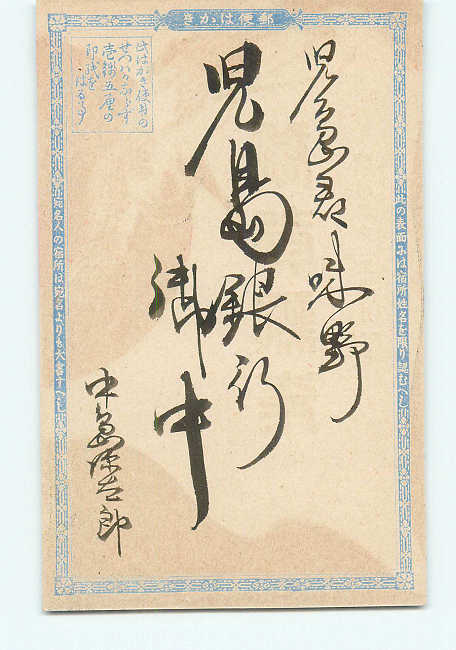 郵便はかき
此の表面には宿所姓名を限り認むべし
児島郡味野
児島銀行
御中
中島源太郎
此はかき使用の
せつハかならず
壱銭五厘の
印紙を
はるべし
宛名人の宿所は宛名よりも大書すべし